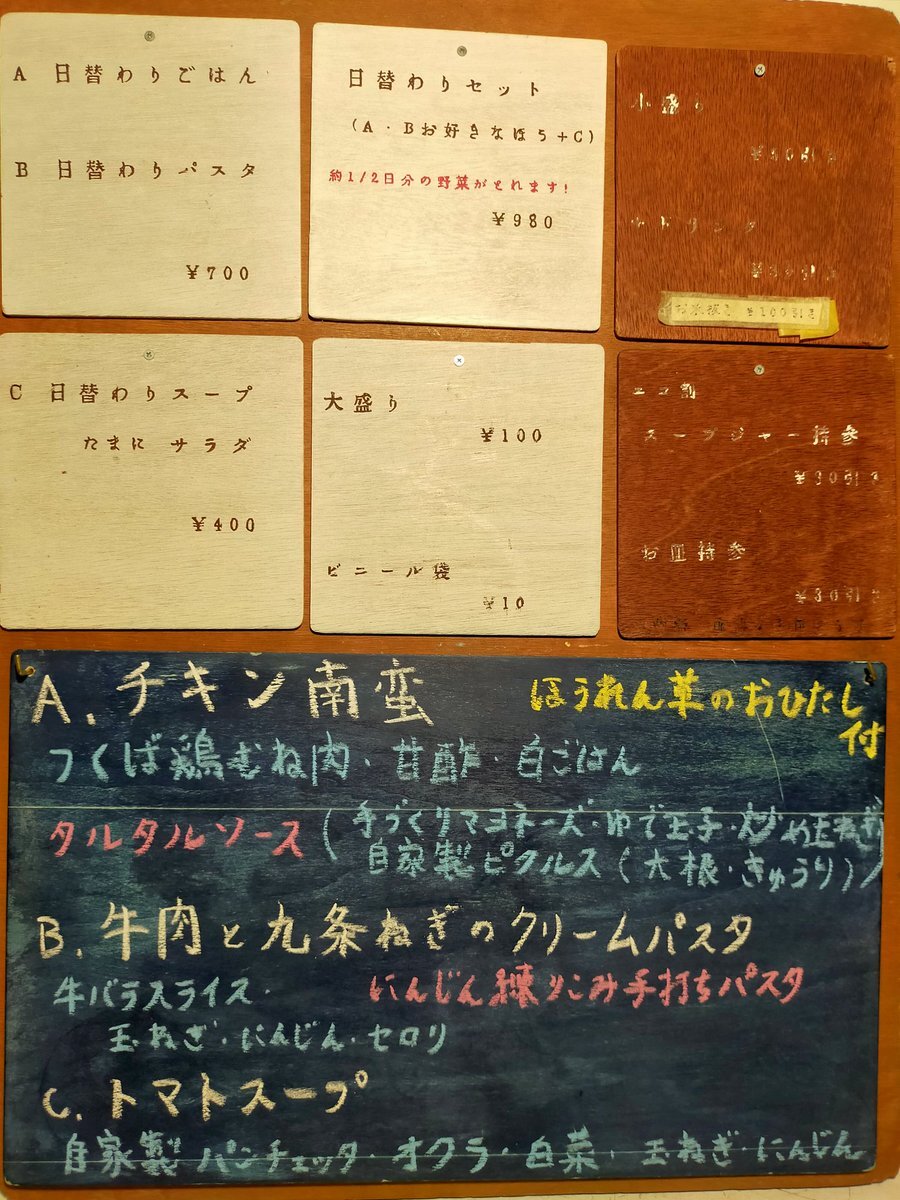 A 日替わりごはん
B 日替わりパスタ
￥700
日替わりセット
(A・Bお好きなほう+C)
約1/2日分の野菜がとれます!
￥980
小盛り
C 日替わりスープ
たまに サラダ
￥400
大盛り
￥100
ビニール袋
￥10
エコ割
スープジャー持参
￥30引き
お皿持参
￥30引き
A.チキン南蛮
ほうれん草のおひたし付
つくば鶏むね肉・甘酢・白ごはん
タルタルソース(手づくりマヨネーズ・ゆで玉子・炒め玉ねぎ
自家製ピクルス(大根・きゅうり))
B.牛肉と九条ねぎのクリームパスタ
牛バラスライス・
にんじん練りこみ手打ちパスタ
玉ねぎ・にんじん・セロリ
C.トマトスープ
自家製パンチェッタ・オクラ・白菜・玉ねぎ・にんじん